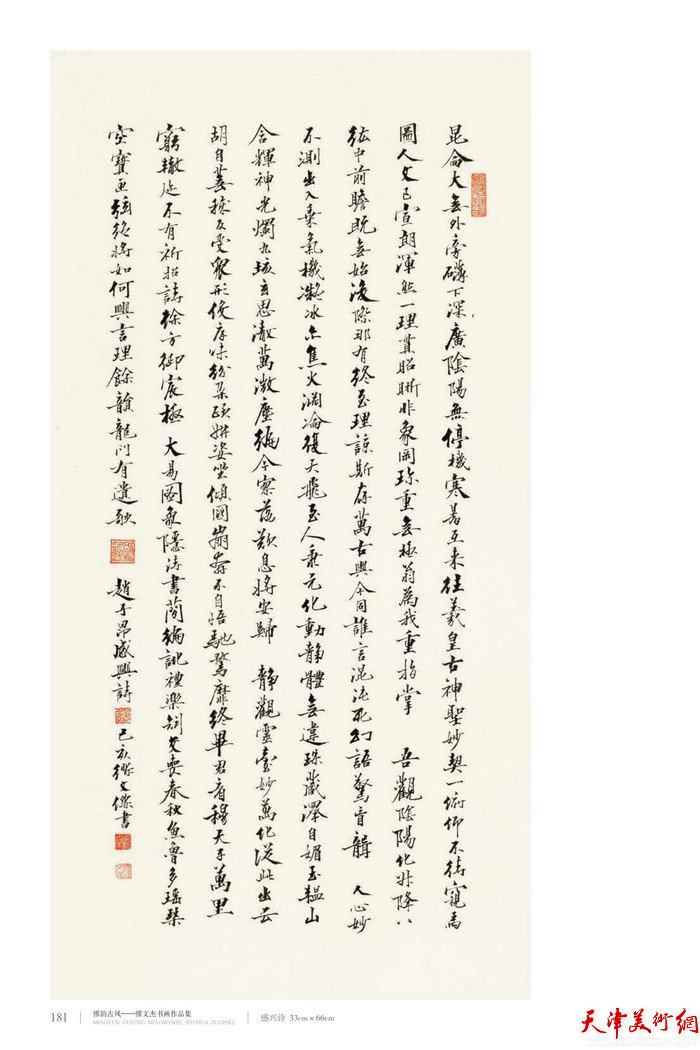 昆侖大無外旁礴下深廣陰陽無停機寒暑互來往羲皇古神聖妙契一俯仰不待窺馬
圖人文已宣朗渾然一理貫昭晰非象罔珍重無極翁為我重指掌 吾觀陰陽化升降八
紘中前瞻既無始後際那有終至理諒斯存萬古與今同誰言混沌死幻語驚盲聾 人心妙
不測出入乘氣機凝冰亦焦火淵淪復天飛至人秉元化動靜體無違珠藏澤自媚玉韞山
含輝神光燭九垓玄思徹萬微塵編今寥落歎息將安歸 靜觀靈臺妙萬化從此出云
胡自蕪穢反受衆形役厚味紛朶頤妍姿坐傾國崩奔不自悟馳騖靡終畢君看穆天子萬里
窮轍迹不有祈招詩徐方御宸極 大易圖象隱詩書簡編訛禮樂矧交喪春秋魚魯多瑤琴
空寶匣絃絕將如何興言理餘韻龍門有遺歌 趙子昂感興詩 己亥繆文傑書
181 缪韵古风——缪文杰书画作品集 感兴诗 33cm×66cm
MIAOYUN GUFENG MIAOWENJIE SHUHUA ZUOPINJI
天津美術網